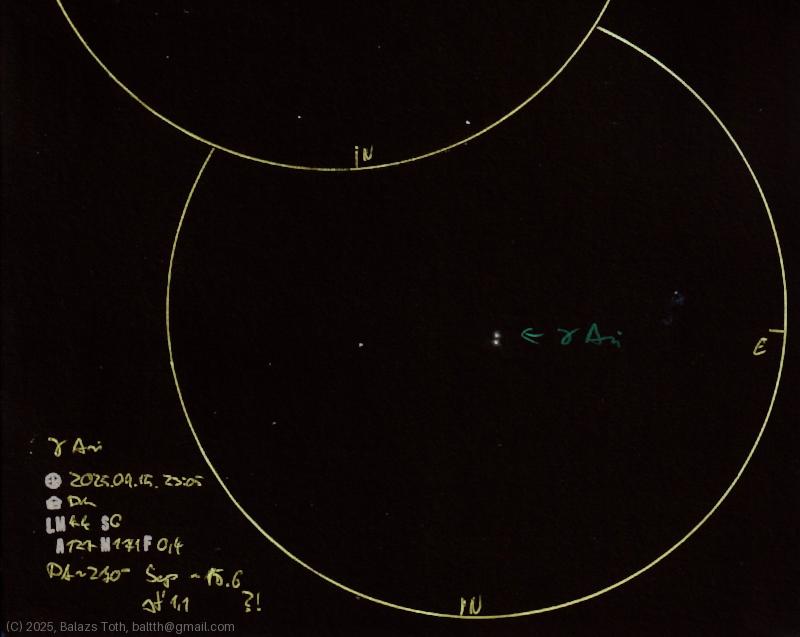 N
← γ Ari
E
γ Ari
2025.09.15. 23:05
LM 4.4 S6
A 127 M 171 F 0,4
PA ~ 210° Sep ~ 15.6
?!
N
(C) 2025, Balazs Toth, baltth@gmail.com